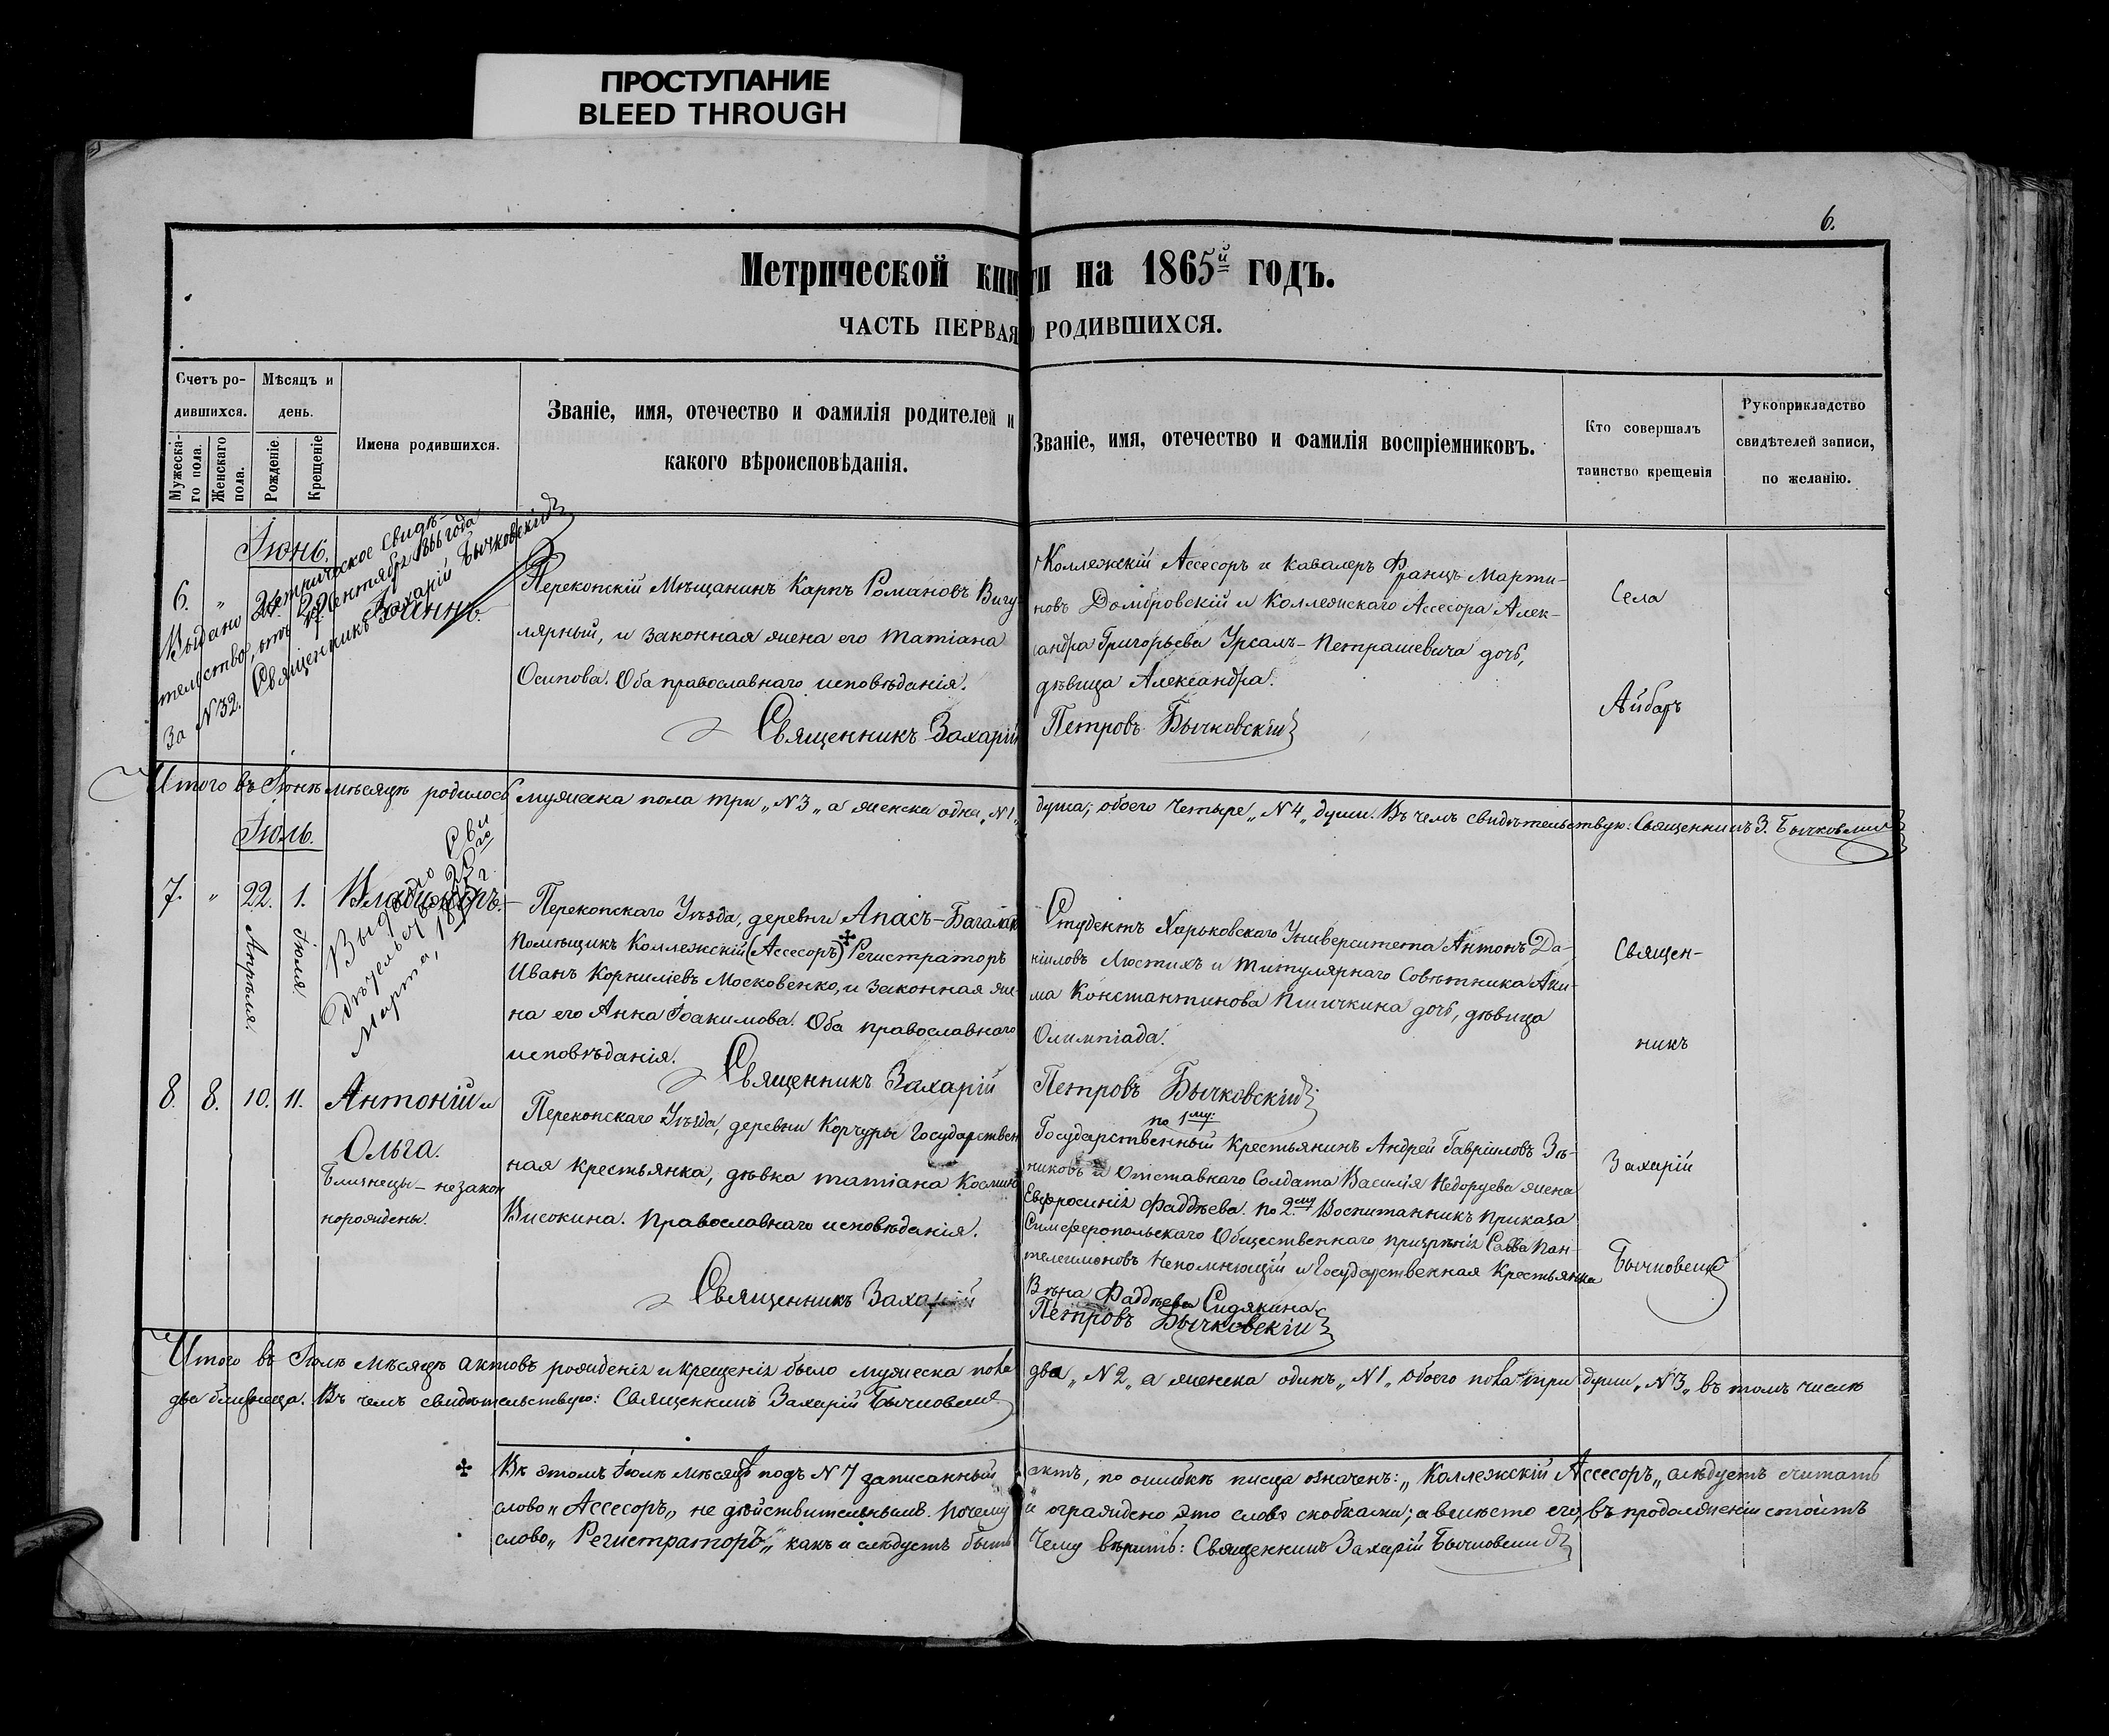 ПРОСТУПАНИЕ
BLEED THROUGH
6.
Метрической книги на 1865й годъ.
ЧАСТЬ ПЕРВАЯ О РОДИВШИХСЯ.
Счетъ ро-
дившихся.
Мужеска-
го пола.
Женскаго
пола.
Мѣсяцъ и
день.
Рожденіе.
Крещеніе
Имена родившихся.
Званіе, имя, отечество и фамилія родителей и
какого вѣроисповѣданія.
Званіе, имя, отечество и фамилія воспріемниковъ.
Кто совершалъ
таинство крещенія
Рукоприкладство
свидѣтелей записи,
по желанію.
Іюнь.
6. " 24. 29. Іоаннъ.
Выдано метрическое свидѣ-
тельство, отъ Сентября года
За №32. Священникъ Захарій Бычковскій
Перекопскій Мѣщанинъ Карпъ Романовъ Вигу-
лярный, и законная жена его Татіана
Осипова. Оба православнаго исповѣданія.
Священникъ Захарій
Коллежскій Ассесоръ и кавалеръ Францъ Марти-
новъ Домбровскій и Коллежскаго Ассесора Алек-
сандра Григорьева Урсалъ-Петрашевича дочь,
дѣвица Александра.
Петровъ Бычковскій
Села
Айбаръ
Итого въ Іюнѣ мѣсяцѣ родилось мужеска пола три „№3„ а женска одна „№1„ душа; обоего четыре „№4„ души. Въ чемъ свидѣтельствую: Священникъ З. Бычковскій
Іюль.
7. " 22. 1. Владиміръ.
Апрѣля.
Іюля
Выдано Сви
дѣтельство 23го
Марта, г.
Перекопскаго Уѣзда, деревни Апасъ-Багалакъ
Помѣщикъ Коллежскій (Ассесоръ) Регистраторъ
Иванъ Корниліевъ Московенко, и законная же-
на его Анна Іоакимова. Оба православнаго
исповѣданія.
Священникъ Захарій
Студентъ Харьковскаго Университета Антонъ Да-
ніиловъ Люстихъ и Титулярнаго Совѣтника Аки-
ма Константинова Пшичкина дочь, дѣвица
Олимпіада.
Петровъ Бычковскій
Священ-
никъ
8. 8. 10. 11. Антоній и
Ольга.
Близнецы - незакон
норождены.
Перекопскаго Уѣзда, деревни Корчуры Государствен
ная крестьянка, дѣвка Татіана Космина
Високина. Православнаго исповѣданія.
Священникъ Захарій
по 1му:
Государственный Крестьянинъ Андрей Гавріиловъ Зѣ-
никовъ и Отставнаго Солдата Василія Недоруева жена
Евфросинія Фаддѣева. по 2му Воспитанникъ Приказа
Симферопольскаго Общественнаго призрѣнія Савва Пан-
телеимоновъ Непомнющій и Государственная Крестьянка
Вѣра Фаддѣева Сидякина
Петровъ Бычковскій
Захарій
Бычковскій
Итого въ Іюлѣ мѣсяцѣ актовъ рожденія и крещенія было мужеска пола два „№2„ а женска одинъ „№1„ обоего пола три души „№3„ въ томъ числѣ
два близнеца. Въ чемъ свидѣтельствую: Священникъ Захарій Бычковскій
Въ этомъ Іюлѣ мѣсяцѣ подъ №7 записанный актъ, по ошибкѣ писца означенъ: „Коллежскій Ассесоръ„ слѣдуетъ считать
слово „Ассесоръ„ не дѣйствительнымъ. почему и ограждено это слово скобками; а вмѣсто его, въ продолженіи стоитъ
слово „Регистраторъ„ какъ и слѣдуетъ быть Чему вѣрить: Священникъ Захарій Бычковскій